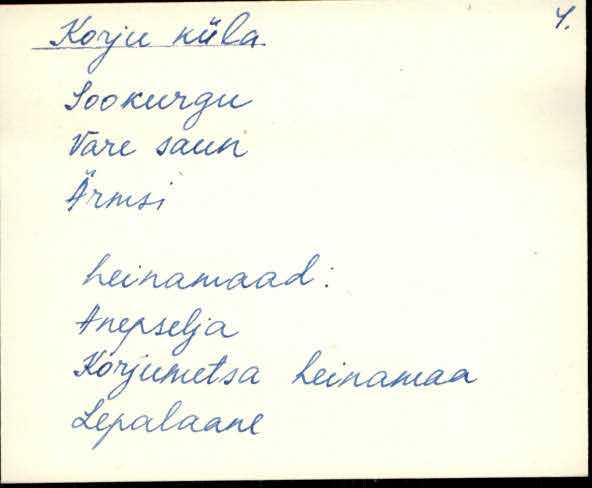 4.
Korju küla
Sookurgu
Vare saun
Ärmsi
heinamaad:
Anepselja
Korjumetsa heinamaa
Lepalaane